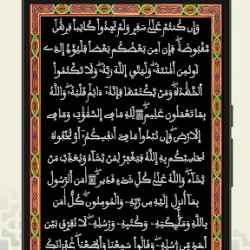 وَإِن كُنتُمْ عَلَىٰ سَفَرٍ وَلَمْ تَجِدُوا۟ كَاتِبًا فَرِهَٰنٌ
مَّقْبُوضَةٌ فَإِنْ أَمِنَ بَعْضُكُم بَعْضًا فَلْيُؤَدِّ الَّذِى
اؤْتُمِنَ أَمَٰنَتَهُۥ وَلْيَتَّقِ اللَّهَ رَبَّهُۥ وَلَا تَكْتُمُوا۟
الشَّهَٰدَةَ وَمَن يَكْتُمْهَا فَإِنَّهُۥٓ ءَاثِمٌ قَلْبُهُۥ وَاللَّهُ
بِمَا تَعْمَلُونَ عَلِيمٌ لِّلَّهِ مَا فِى السَّمَٰوَٰتِ وَمَا فِى
الْأَرْضِ وَإِن تُبْدُوا۟ مَا فِىٓ أَنفُسِكُمْ أَوْ تُخْفُوهُ
يُحَاسِبْكُم بِهِ اللَّهُ فَيَغْفِرُ لِمَن يَشَآءُ وَيُعَذِّبُ مَن
يَشَآءُ وَاللَّهُ عَلَىٰ كُلِّ شَىْءٍ قَدِيرٌ ءَامَنَ الرَّسُولُ
بِمَآ أُنزِلَ إِلَيْهِ مِن رَّبِّهِۦ وَالْمُؤْمِنُونَ كُلٌّ ءَامَنَ
بِاللَّهِ وَمَلَٰٓئِكَتِهِۦ وَكُتُبِهِۦ وَرُسُلِهِۦ لَا نُفَرِّقُ بَيْنَ
أَحَدٍ مِّن رُّسُلِهِۦ وَقَالُوا۟ سَمِعْنَا وَأَطَعْنَا غُفْرَانَكَ